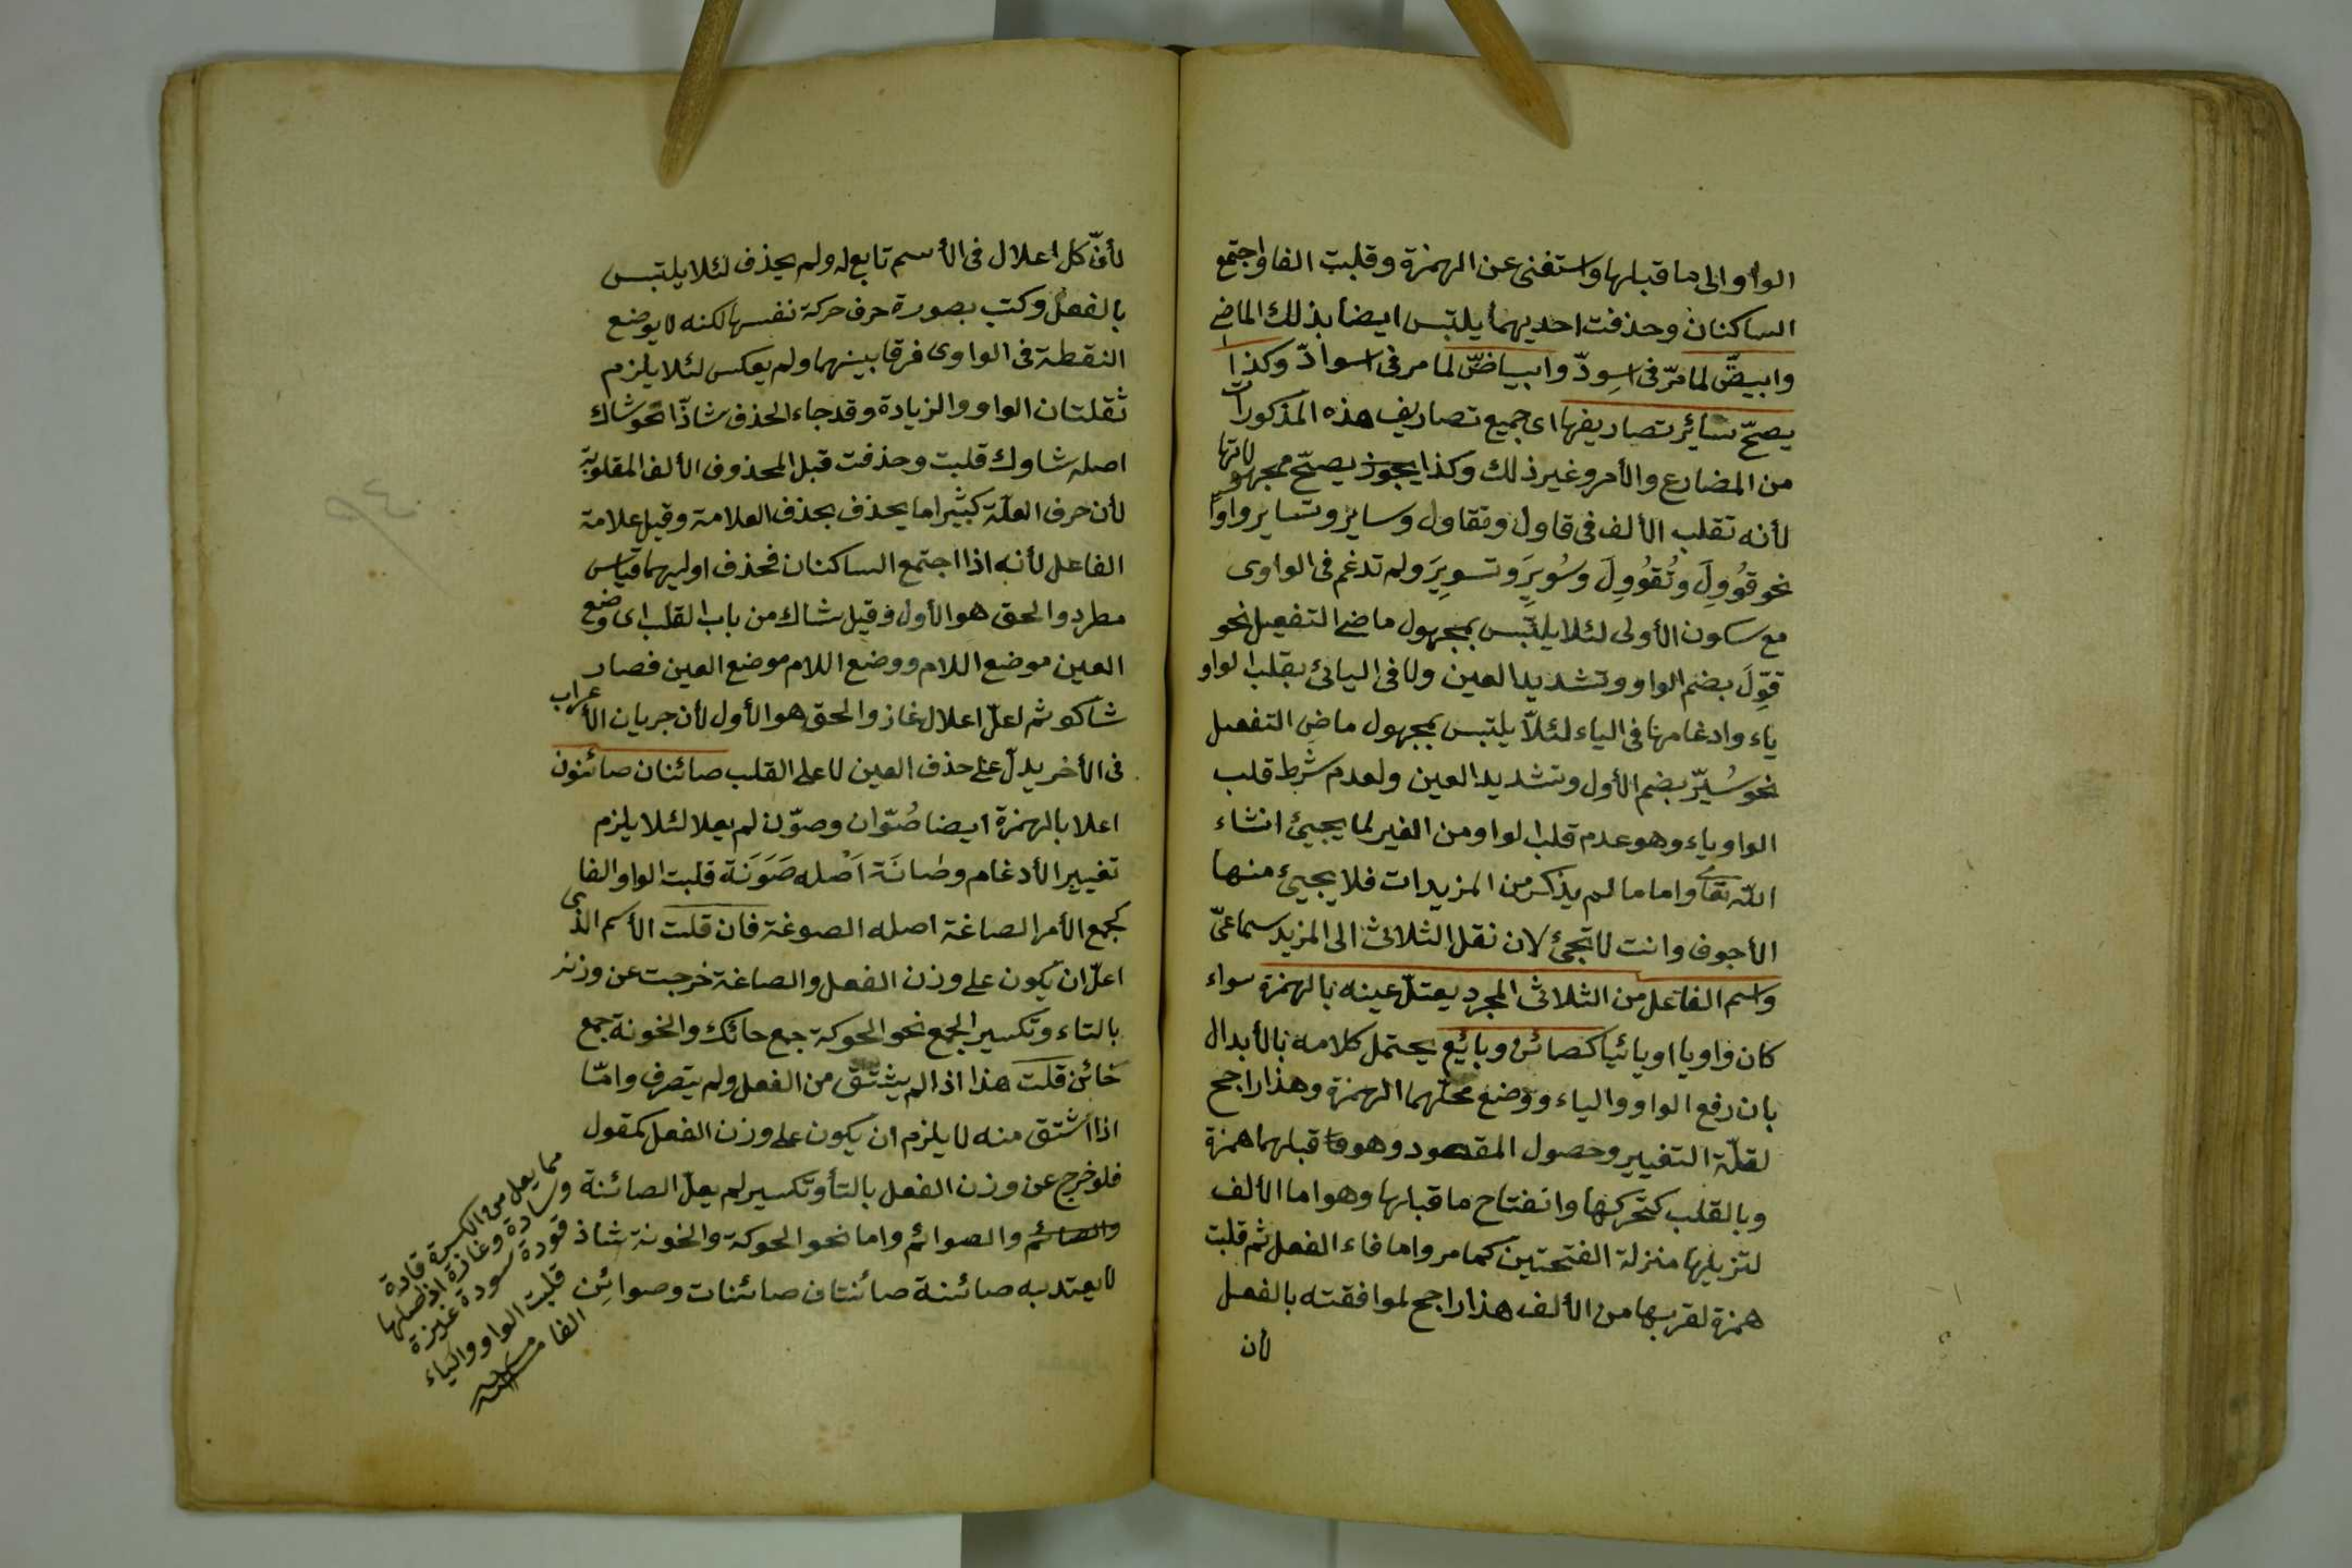 الواو الى ما قبلها واستغنى عن الهمزة وقلبت الفا واجتمع
الساكنان وحذفت احديهما يلتبس ايضا بذلك الماضى
وابيضّ لما مرّ فى اسودّ وابياضّ لما مر فى اسوادّ وكذا
يصحّ سائر تصاريفها اى جميع تصاريف هذه المذكورات
من المضارع والأمر وغير ذلك وكذا يجوز يصحّ مجهولاتها
لأنه تقلب الألف فى قاول وتقاول وساير وتساير واوًا
نحو قُووِلَ وتُقُووِلَ وسُويِرَ وتسويِرَ ولم تدغم فى الواوى
مع سكون الأولى لئلا يلتبس بمجهول ماضى التفعيل نحو
قوّلَ بضم الواو وتشديد العين ولا فى اليائى بقلب الواو
ياء وادغامها فى الياء لئلاّ يلتبس بمجهول ماضى التفعيل
نحو سُيّر بضم الأول وتشديد العين ولعدم شرط قلب
الواو ياء وهو عدم قلب الواو من الغير لما يجيئ انشاء
اللّه تعالى واما ما لم يذكر من المزيدات فلا يجيئ منها
الأجوف وانت لا تجئ لان نقل الثلاثى الى المزيد سماعىّ
واسم الفاعل من الثلاثى المجرد يعتلّ عينه بالهمزة سواء
كان واويا او يائيا كصائن وبائع يحتمل كلامه بالأبدال
بان رفع الواو والياء ووضع محلّهما الهمزة وهذا راجح
لقلّة التغيير وحصول المقصود وهو قبلهما همزة
وبالقلب كتحركها وانفتاح ما قبلها وهو اما الألف
لتزيلها منزلة الفتحتين كما مر واما فاء الفعل ثم قلبت
همزة لقربها من الألف هذا راجح لموافقته بالفعل
لأن
لأنّ كل اعلال فى الأسم تابع له ولم يحذف لئلا يلتبس
بالفعل وكتب بصورة حرف حركة نفسها لكنه لا يوضع
النقطة فى الواوى فرقا بينهما ولم يعكس لئلا يلزم
ثقلتان الواو والزيادة وقد جاء الحذف شاذّا نحو شاك
اصله شاوك قلبت وحذفت قبل المحذوف الألف المقلوبة
لأن حرف العلّة كثيرا ما يحذف بحذف العلامة وقيل علامة
الفاعل لأنه اذا اجتمع الساكنان فحذف اوليهما قياس
مطرد والحق هو الأول وقيل شاك من باب القلب اى وضع
العين موضع اللام ووضع اللام موضع العين فصار
شاكو ثم اعلّ اعلال غاز والحق هو الأول لأن جريان الأعراب
فى الأخر يدلّ على حذف العين لا على القلب صائنان صائنون
اعلا بالهمزة ايضا صُوّان وصوّن لم يعلا لئلا يلزم
تغيير الأدغام وصانَة اَصْله صَوَنَة قلبت الواو الفا
كجمع الأمر الصاغة اصله الصوغة فان قلت الأسم الذى
اعلّ ان يكون على وزن الفعل والصاغة خرجت عن وزنه
بالتاء وتكسير الجمع نحو الحوكة جمع حائك والخونة جمع
خائن قلت هذا اذا لم يشتق من الفعل ولم يتصرف وامّا
اذا أشتق منه لا يلزم ان يكون على وزن الفعل كمقول
فلو خرج عن وزن الفعل بالتأ وتكسير لم يعلّ الصائنة
والصائم والصوائم واما نحو الحوكة والخونة شاذ
لا يعتد به صائنة صائنتان صائنات وصوائن
مما يعل من الكسرة قادة
وسادة وغازة اذ اصلها
قودة سودة غيزة
قلبت الواو والياء
الفا